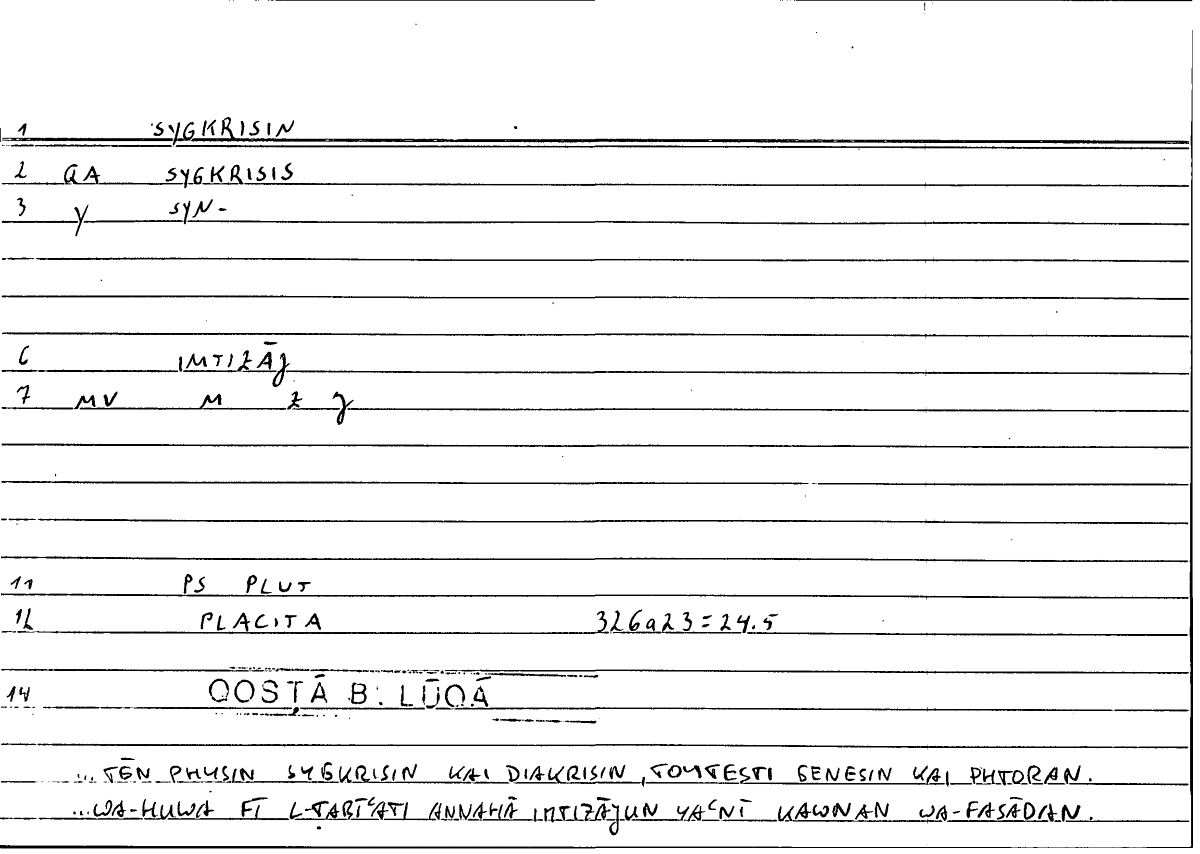 1 SYGKRISIN
2 QA SYGKRISIS
3 Y SYN-
6 IMTIZĀJ
7 MV M Z J
11 PS PLUT
12 PLACITA 326a23=24.5
14 QOSṬĀ B. LŪQĀ
...TĒN PHYSIN SYGKRISIN KAI DIAKRISIN, TOYTESTI GENESIN KAI PHTORAN.
...WA-HUWA FĪ L-ṬABĪʿATI ANNAHĀ IMTIZĀJUN YAʿNĪ KAWNAN WA-FASĀDAN.